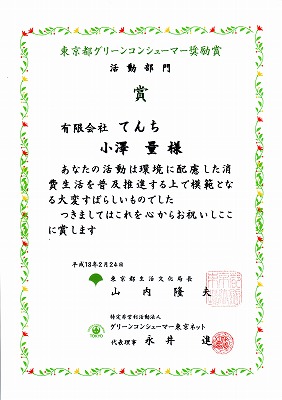 東京都グリーンコンシューマー奨励賞
活動部門
賞
有限会社 てんち
小澤 量 様
あなたの活動は環境に配慮した消
費生活を普及推進する上で模範とな
る大変すばらしいものでした
つきましてはこれを心からお祝いしここ
に賞します
平成18年2月24日
東京都生活文化局長
山内 隆夫
特定非営利活動法人
グリーンコンシューマー東京ネット
代表理事 永井 進